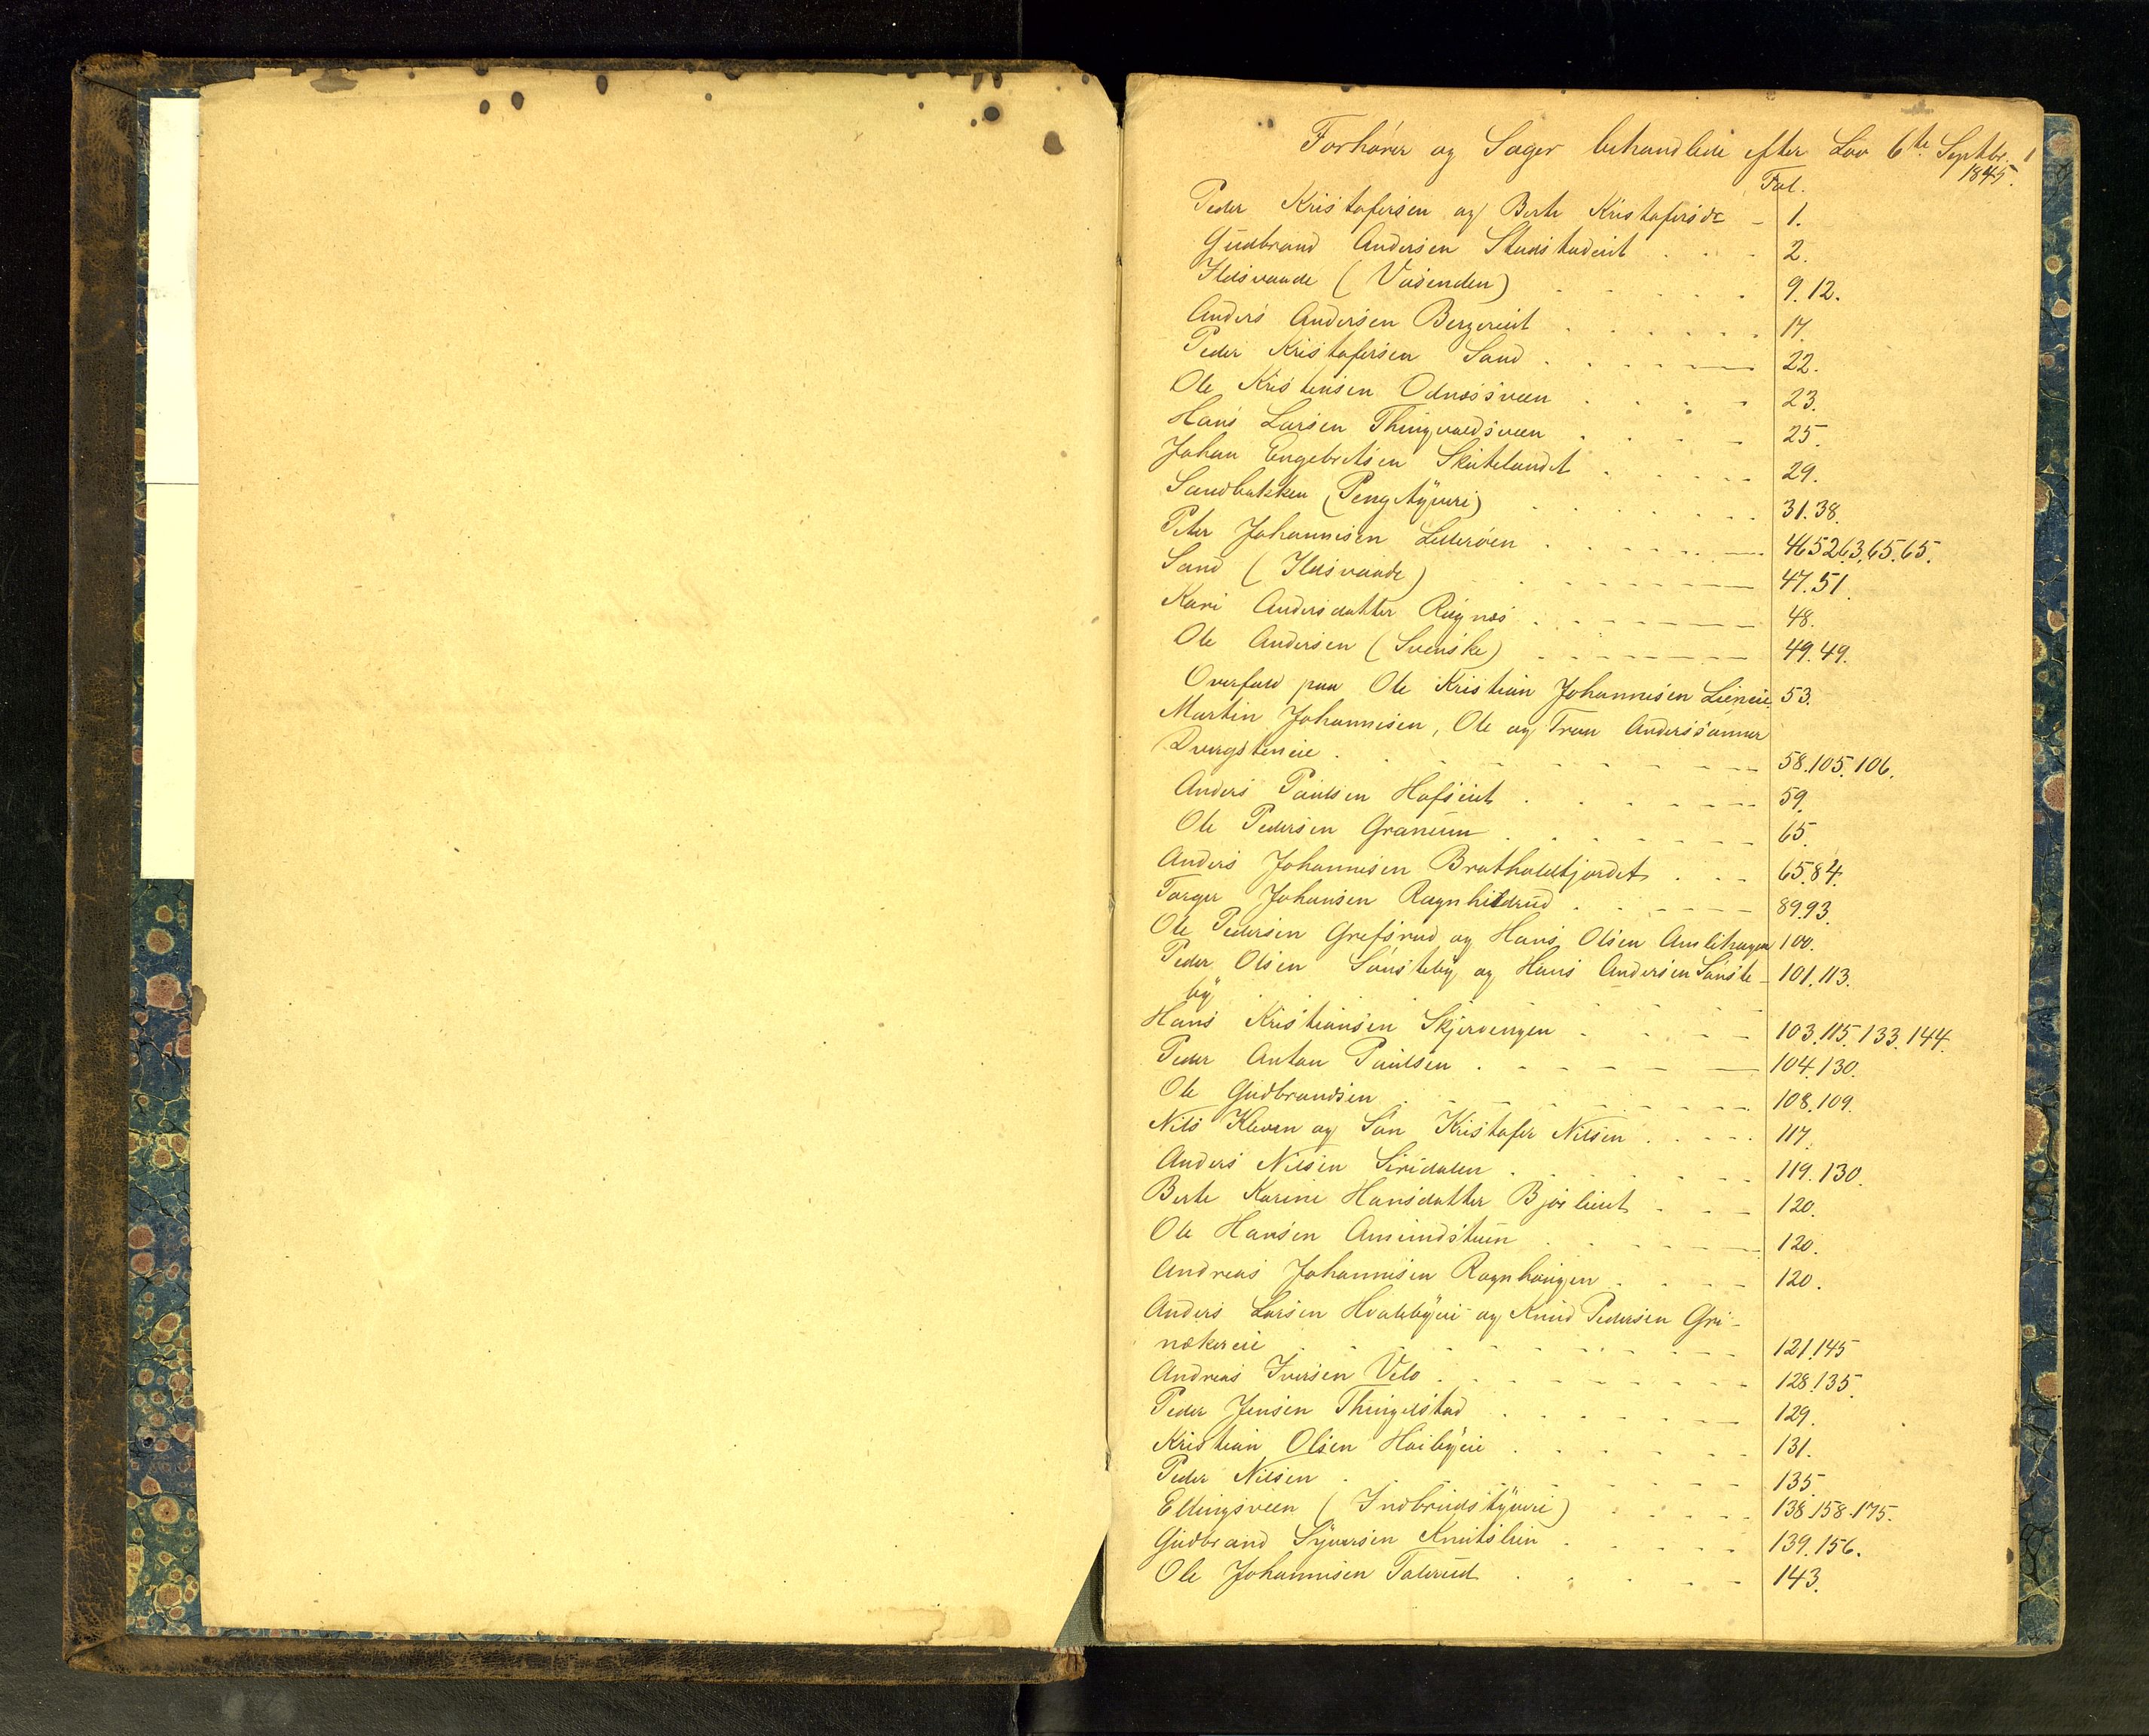 Forhører og Sager behandlede efter Lov 6te Septbr. 1
1845.
Fol.
Peder Kristofersen og Berte Kristofersdr - 1.
Gudbrand Andersen Stadstadeiet 2.
Ildsvaade (Vasenden) 9. 12.
Anders Andersen Bergereiet 17.
Peder Kristofersen Sand 22.
Ole Kristensen Odnæssveen 23.
Hans Larsen Thingvoldsveen 25.
Johan Engebretsen Skutelandet 29.
Sandbakken (Pengetyveri) 31. 38.
Peter Johannesen Lillerøen 46 52 63. 65. 65.
Sand (Ildsvaade) 47. 51.
Kari Andersdatter Rognæs 48.
Ole Andersen (Svenske) 49. 49.
Overfald paa Ole Kristian Johannesen Lieneie 53.
Martin Johannesen, Ole og Tron Anderssønner
Dvergsteneie 58. 105. 106.
Anders Paulsen Hofseiet 59.
Ole Pedersen Granum 65.
Anders Johannesen Bratholdtjordet 65. 84.
Torger Johansen Ragnhildrud 89. 93.
Ole Pedersen Grefsrud og Hans Olsen Amlihagen 100.
Peder Olsen Sønsteby og Hans Andersen Sønste- 101. 113.
by
Hans Kristiansen Skjervengen 103. 115. 133. 144.
Peder Anton Paulsen 104. 130.
Ole Gudbrandsen 108. 109.
Nils Kleven og Søn Kristofer Nilsen 117.
Anders Nilsen Siridalen 119. 130.
Berte Karine Hansdatter Bjørlieiet 120.
Ole Hansen Amundstuen 120.
Andreas Johannesen Rognhaugen 120.
Anders Larsen Hvalebyeie og Knud Pedersen Gri-
nakereie 121. 145
Andreas Iversen Velo 128. 135.
Peder Jensen Thingelstad 129.
Kristian Olsen Høibyeie 131.
Peder Nilsen 135
Eltingsveen (Indbrudstyveri) 138. 158. 175.
Gudbrand Syversen Knutslien 139. 156.
Ole Johannesen Talerud 143.